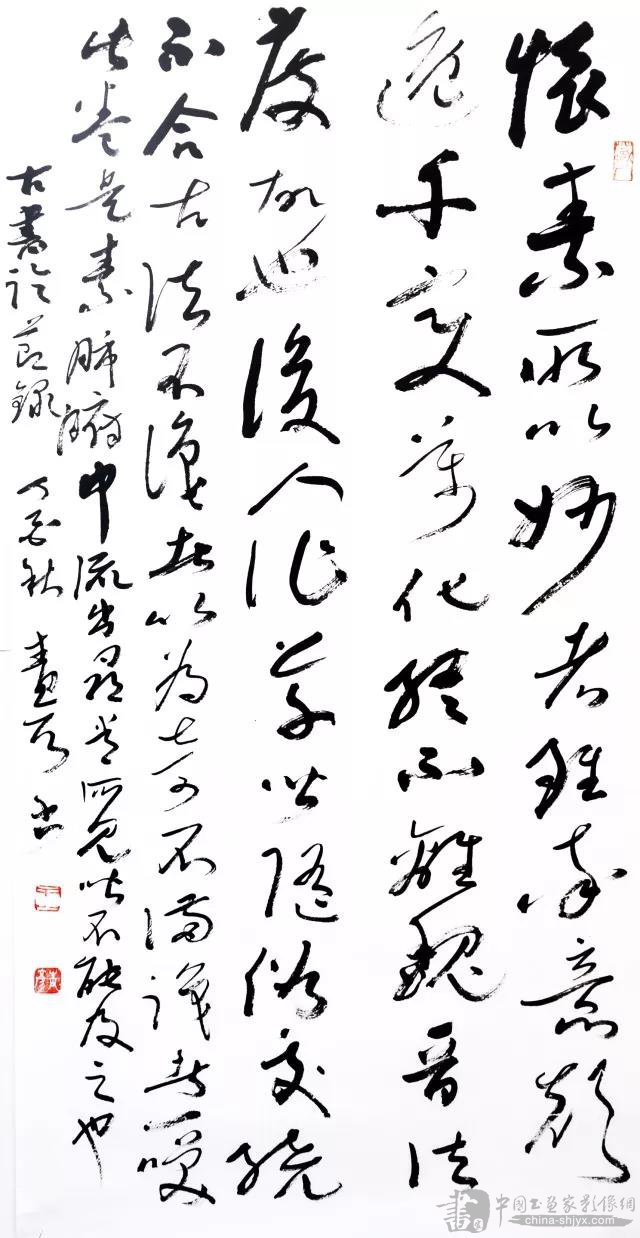 懷素所以妙者雖率意顛
逸千變萬化終不離魏晉法
度故也後人作草皆隨俗交繞
不合古法不識者以為奇不滿識者一嘆
此卷是素肺腑中流出尋常所見皆不能及之也
古書論節錄 丁酉秋 書
書 中國书畫家影像網
china-shjyx.com